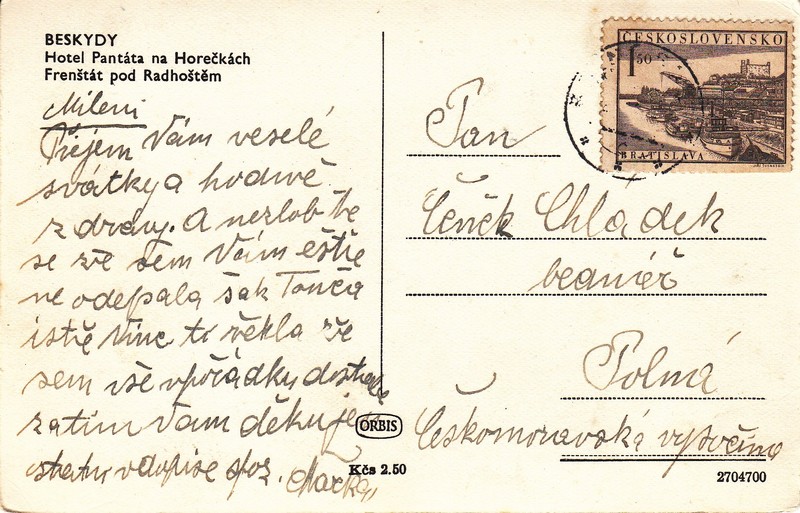 BESKYDY
Hotel Pantáta na Horečkách
Frenštát pod Radhoštěm
Mileni
Přejem Vám veselé
svátky a hodně
zdravy. A nezlobte
se že sem Vám eštie
ne odepsala šak Tonča
istě Vinc ti řekla že
sem vše vpořádky dostala
zatim Vam děkuje
ostatni v dopise spoz. Mařka
ČESKOSLOVENSKO
1 50
BRATISLAVA
Pan
Čeněk Chladek
bednář
Polná
Českomoravská vysočina
ORBIS
Kčs 2.50
2704700